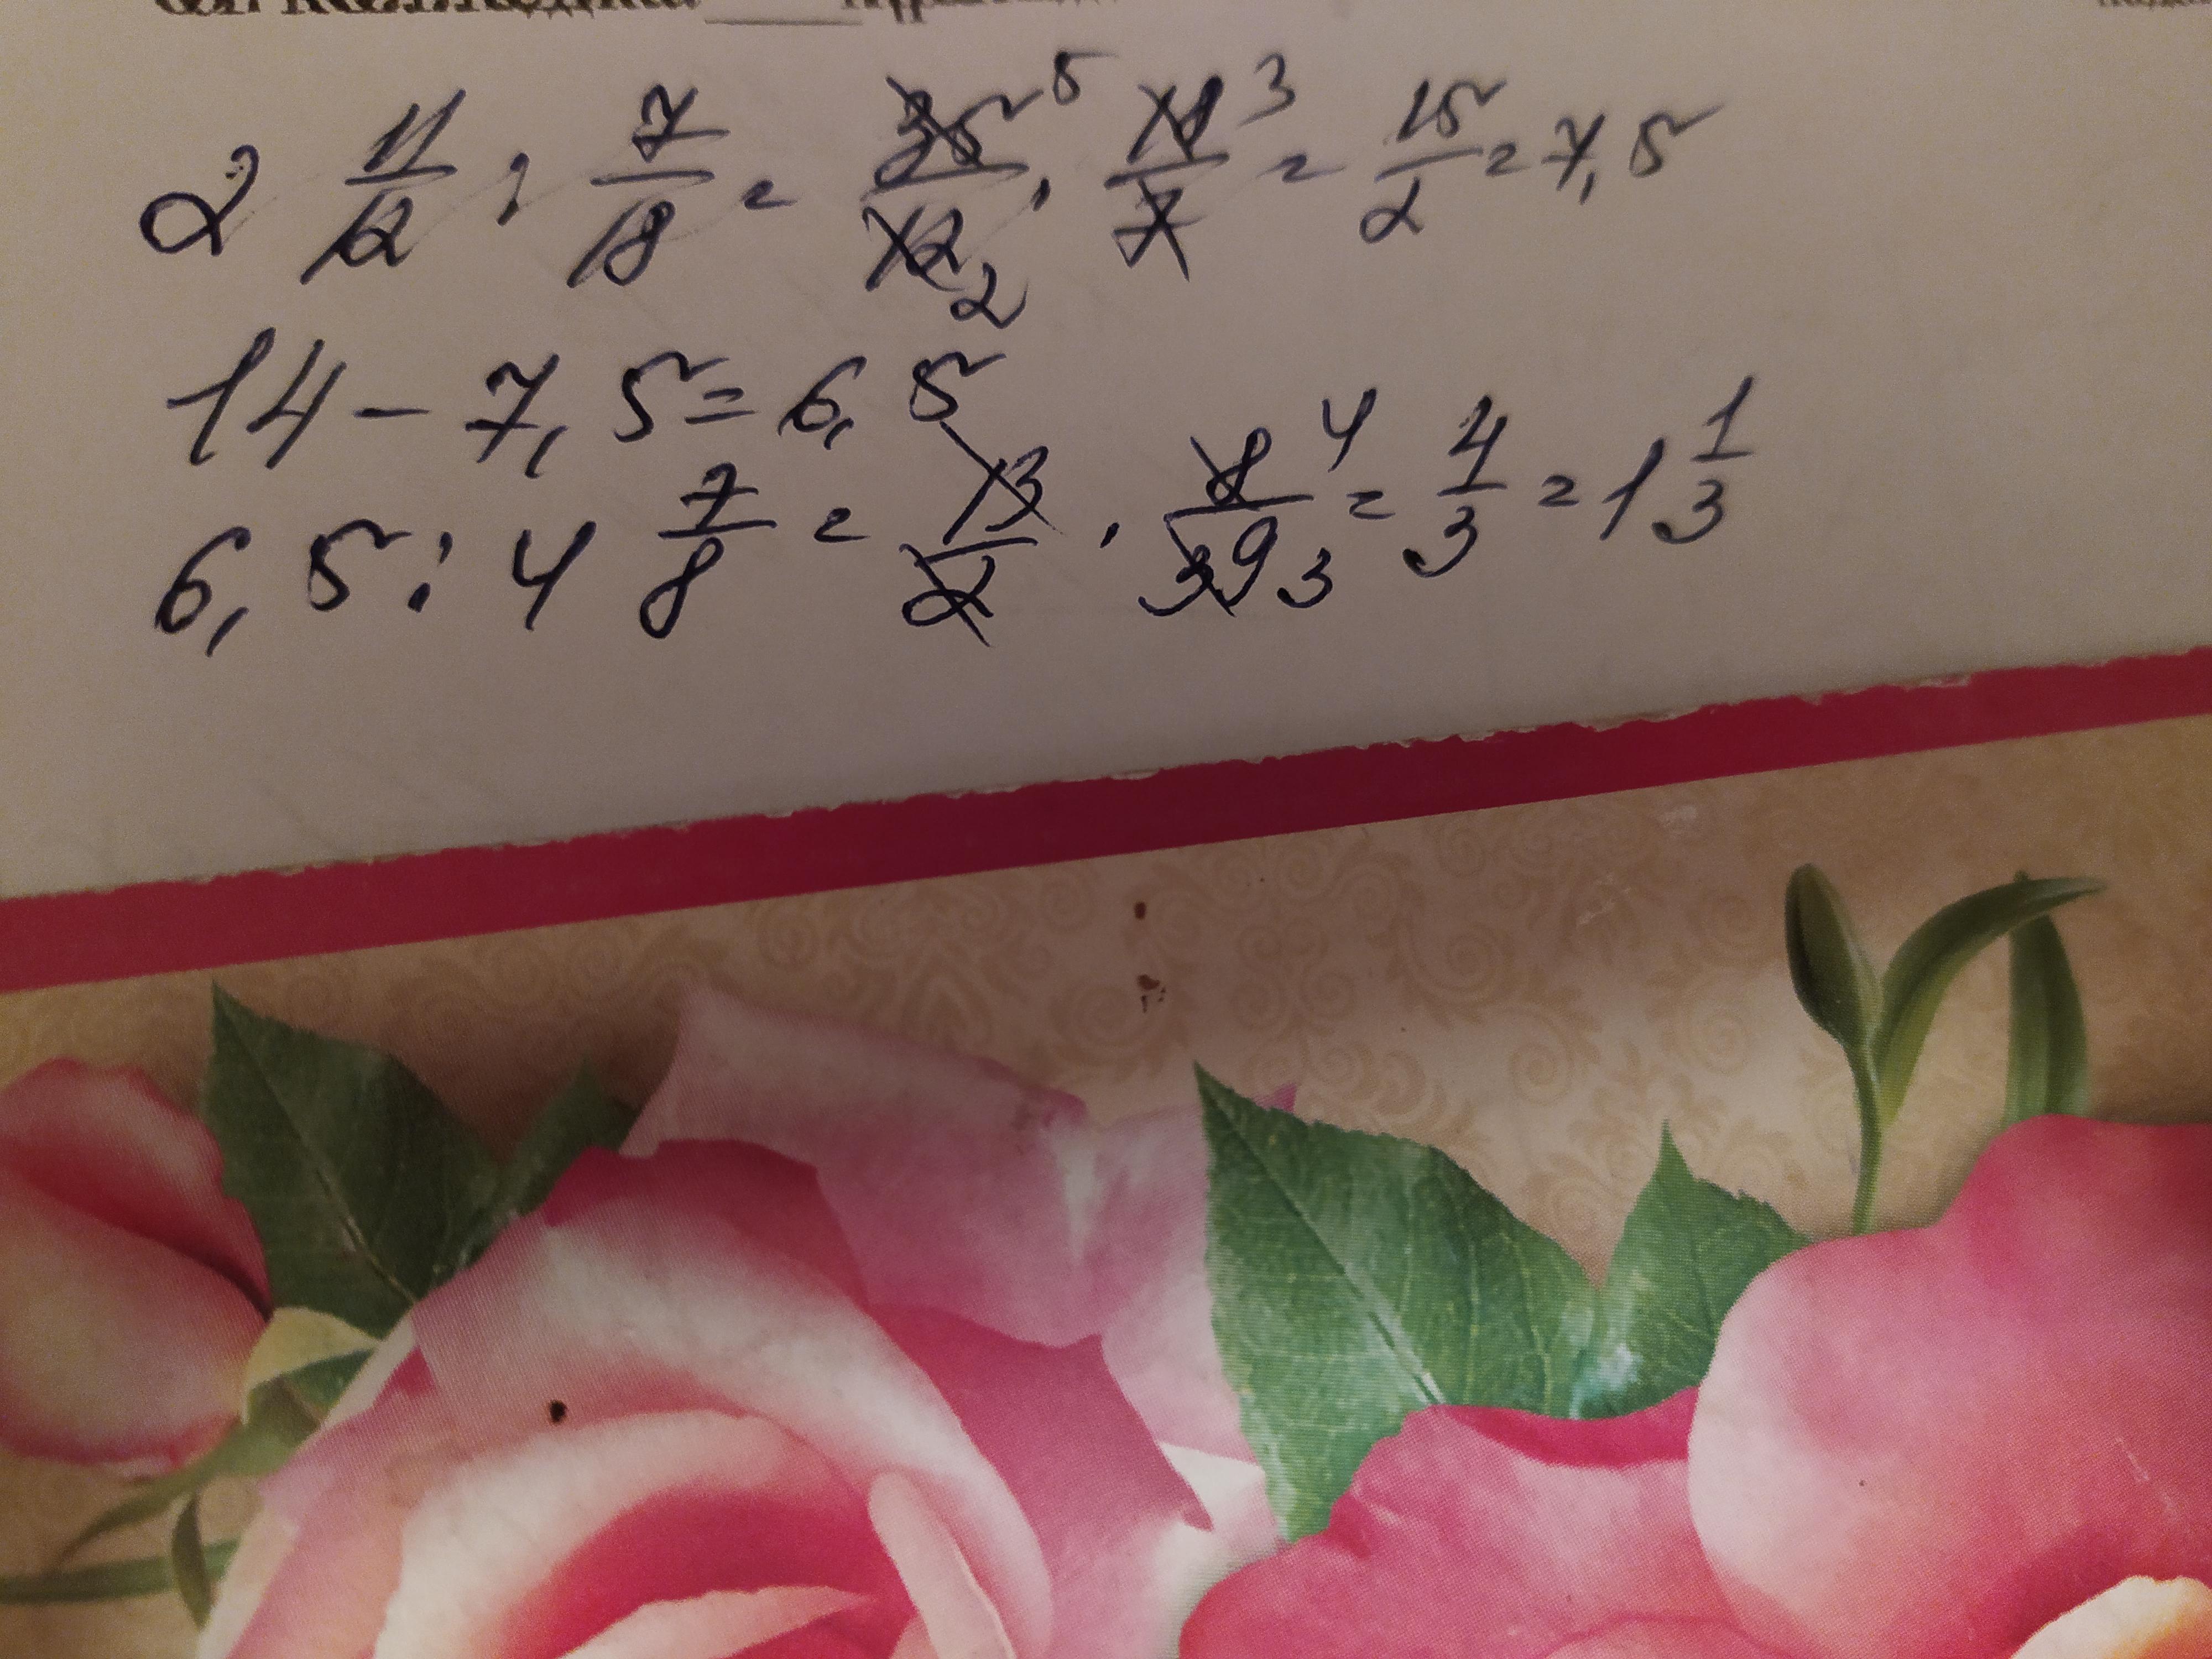 2 11/12 : 7/18 = 35/12 5 2 · 18/7 3 = 15/2 = 7,5
14 - 7,5 = 6,5
6,5 : 4 7/8 = 13/2 · 8/39 4 3 = 4/3 = 1 1/3